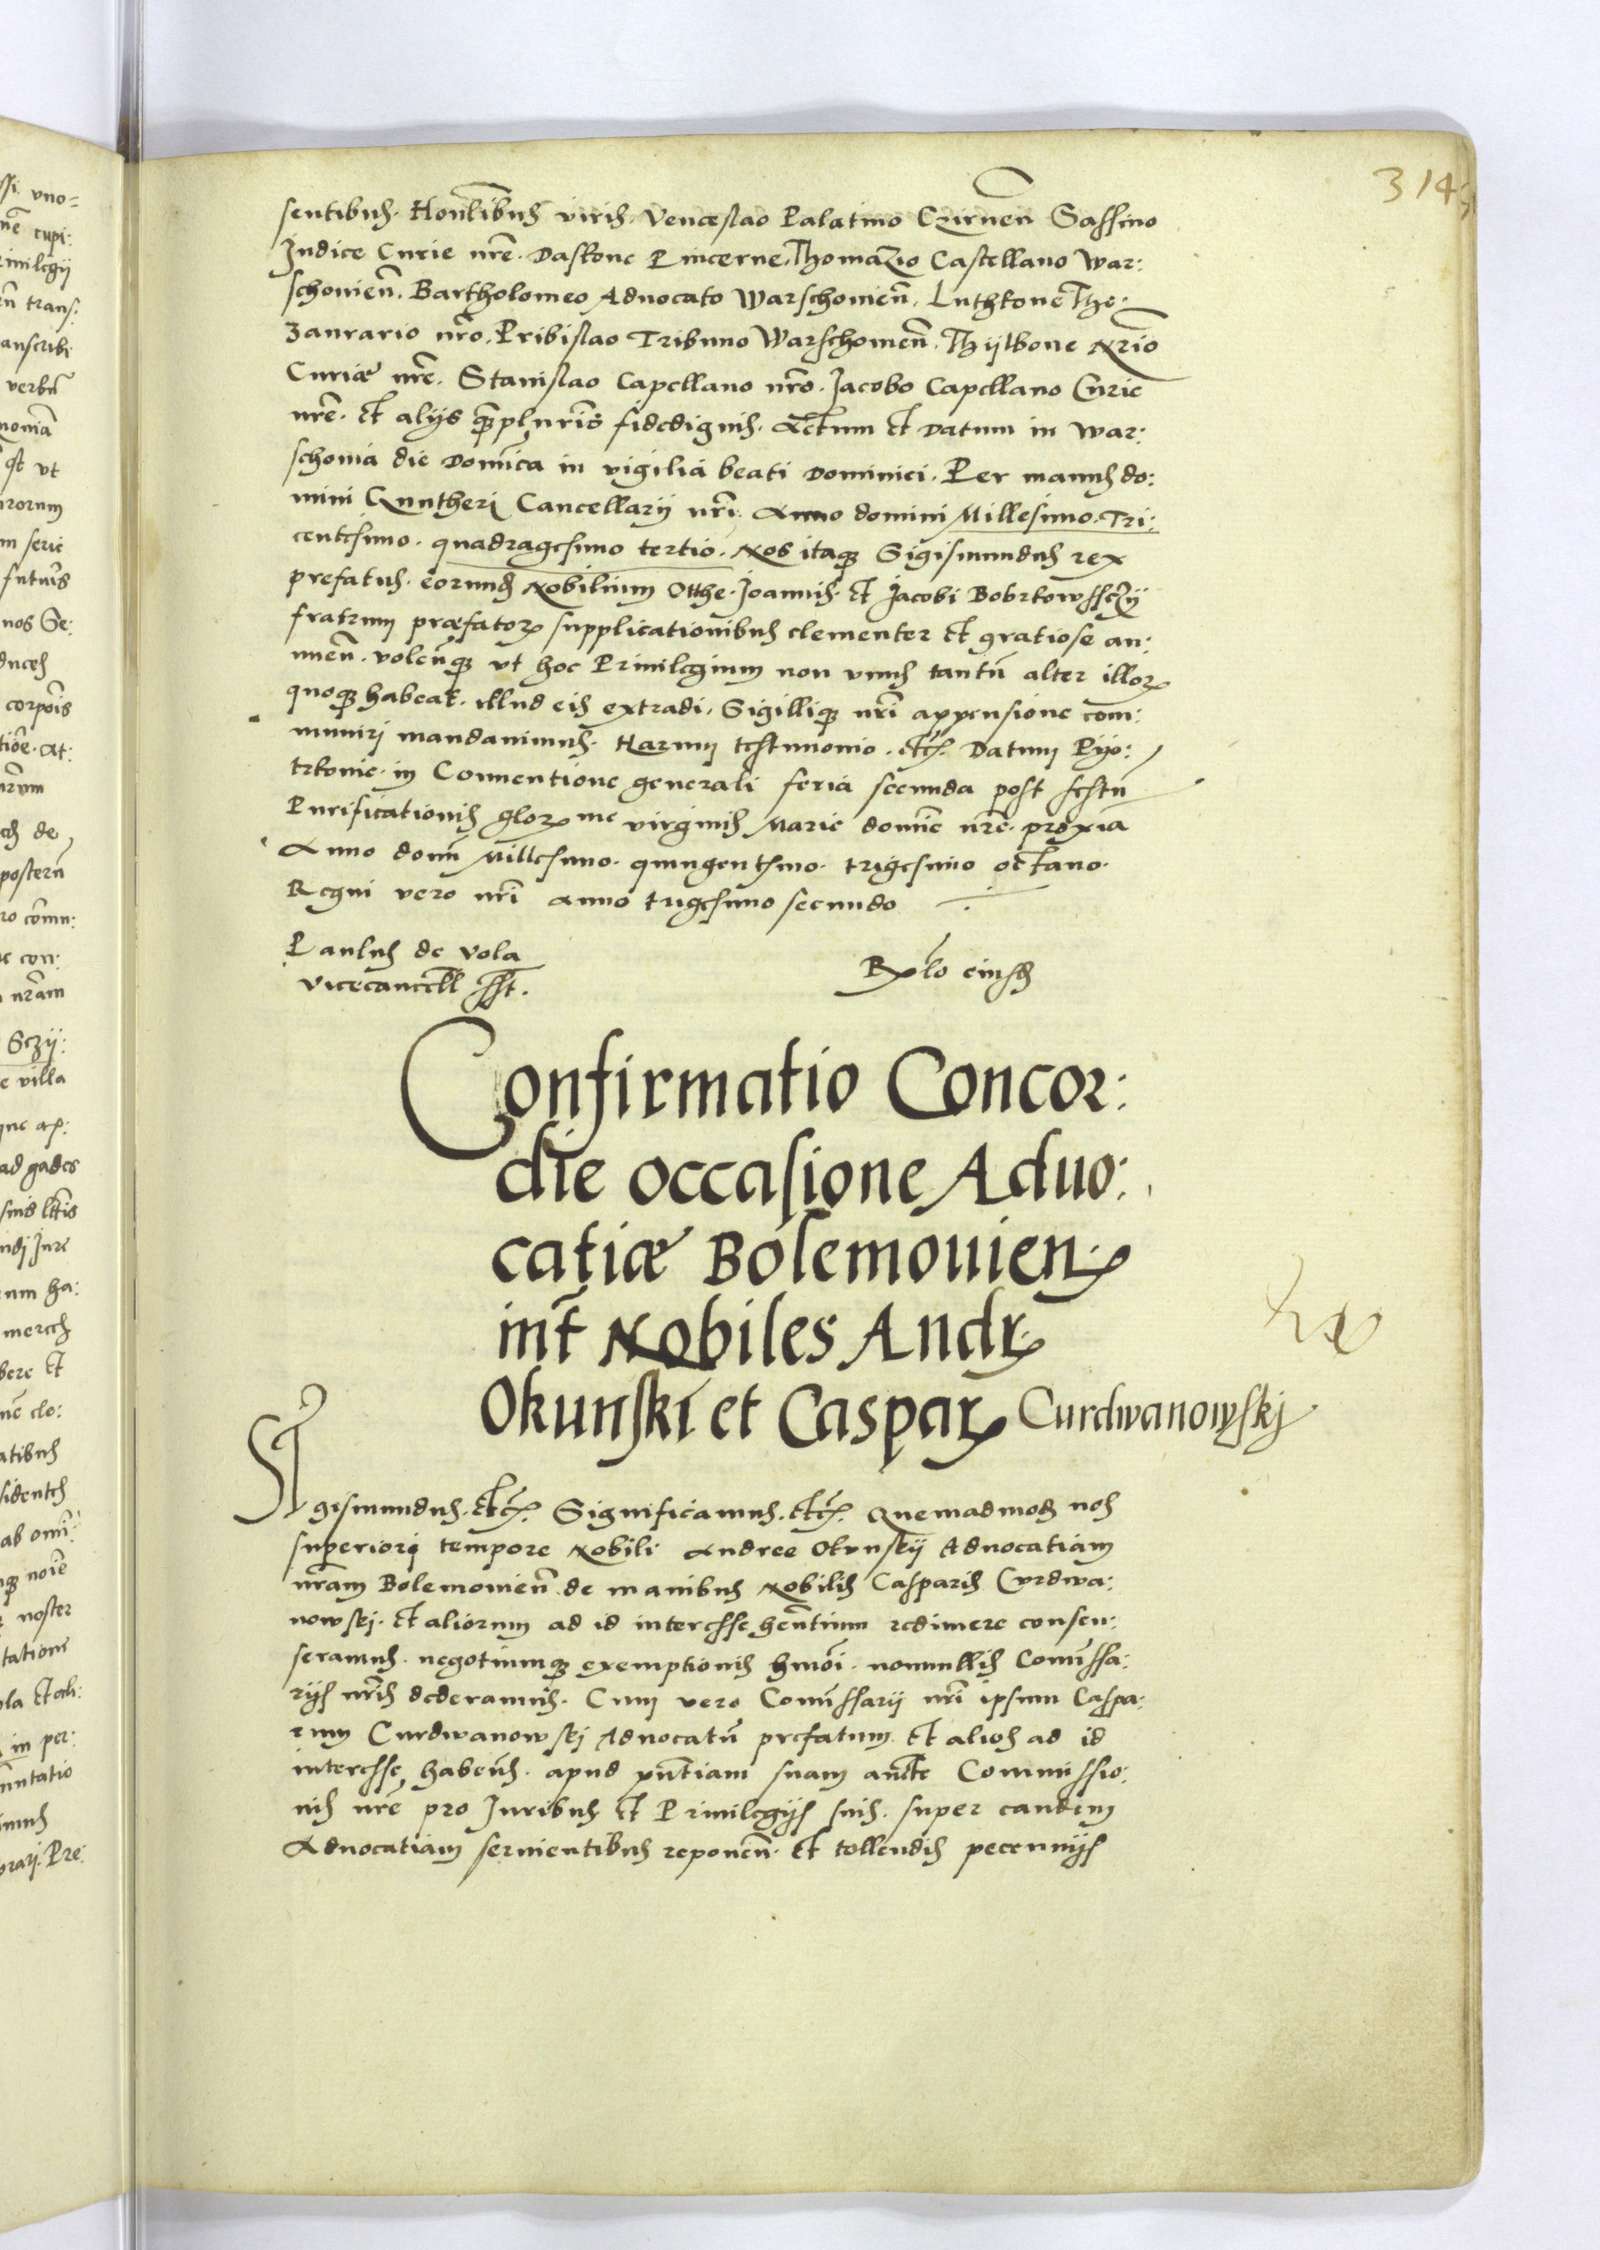 314
sentibus. Honlibus viris. Venceslao Palatino Czirnen Sassino
Judice Curie nre. Daskone Pincerne, Thomazio Castellano War:
schouien. Bartholomeo Aduocato Warschouien. Luthkone The:
zaurario nro. Pribislao Tribuno Warschouien. Thylkone Nrio
Curiæ nre. Stanislao Capellano nro. Jacobo Capellano Curie
nre. et alijs qpluris fidedignis. Actum et Datum in War:
schouia die Domica in vigilia beati Dominici. Per manus do:
mini Guntheri Cancellarij nri. Anno domini Millesimo. Tri:
centesimo. quadragesimo tertio. Nos itaq Sigismundus rex
prefatus. eorund Nobilium Otthe. Joannis. et Jacobi Bobrkowssczij
fratrum præfator supplicationibus clementer et gratiose an:
nuen. volenq vt hoc Priuilegium non vnus tantu alter illor
quoq habeat. illud eis extradi. Sigilliq nri appensione com:
muniri mandauimus. Harum testimonio. etc. Datum Pijo:
trkouie. in Conuentione generali feria secunda post festu
Purificationis glor me virginis Marie domie nre. proxia
Anno domi Millesimo. quingentsimo. trigesimo octauo.
Regni vero nri anno trigesimo secundo
Paulus de Vola
Vicecancell sst.
Rlo eiusd
Confirmatio Concor:
die occasione Aduo:
catiæ Bolemouien
int Nobiles Andr
Okunski et Caspar Curdwanowskj
Sigismundus. etc. Significamus. etc. Quemadmod nos
superiori tempore Nobili Andree Okunskij Aduocatiam
nram Bolemouien de manibus Nobilis Casparis Curdwa:
nowskj. et aliorum ad id interesse hentium redimere consen:
seramus. negotiumq exemptionis hmoi. nonnullis Comissa:
rijs nris dederamus. Cum vero Comissarij nri ipsum Caspa:
rum Curdwanowskj Aduocatu prefatum et alios ad id
interesse habens. apud pntiam suam aucte Commissio:
nis nre pro Juribus et Priuilegijs suis. super eandem
Aduocatiam seruientibus reponen. et tollendis pecunijs